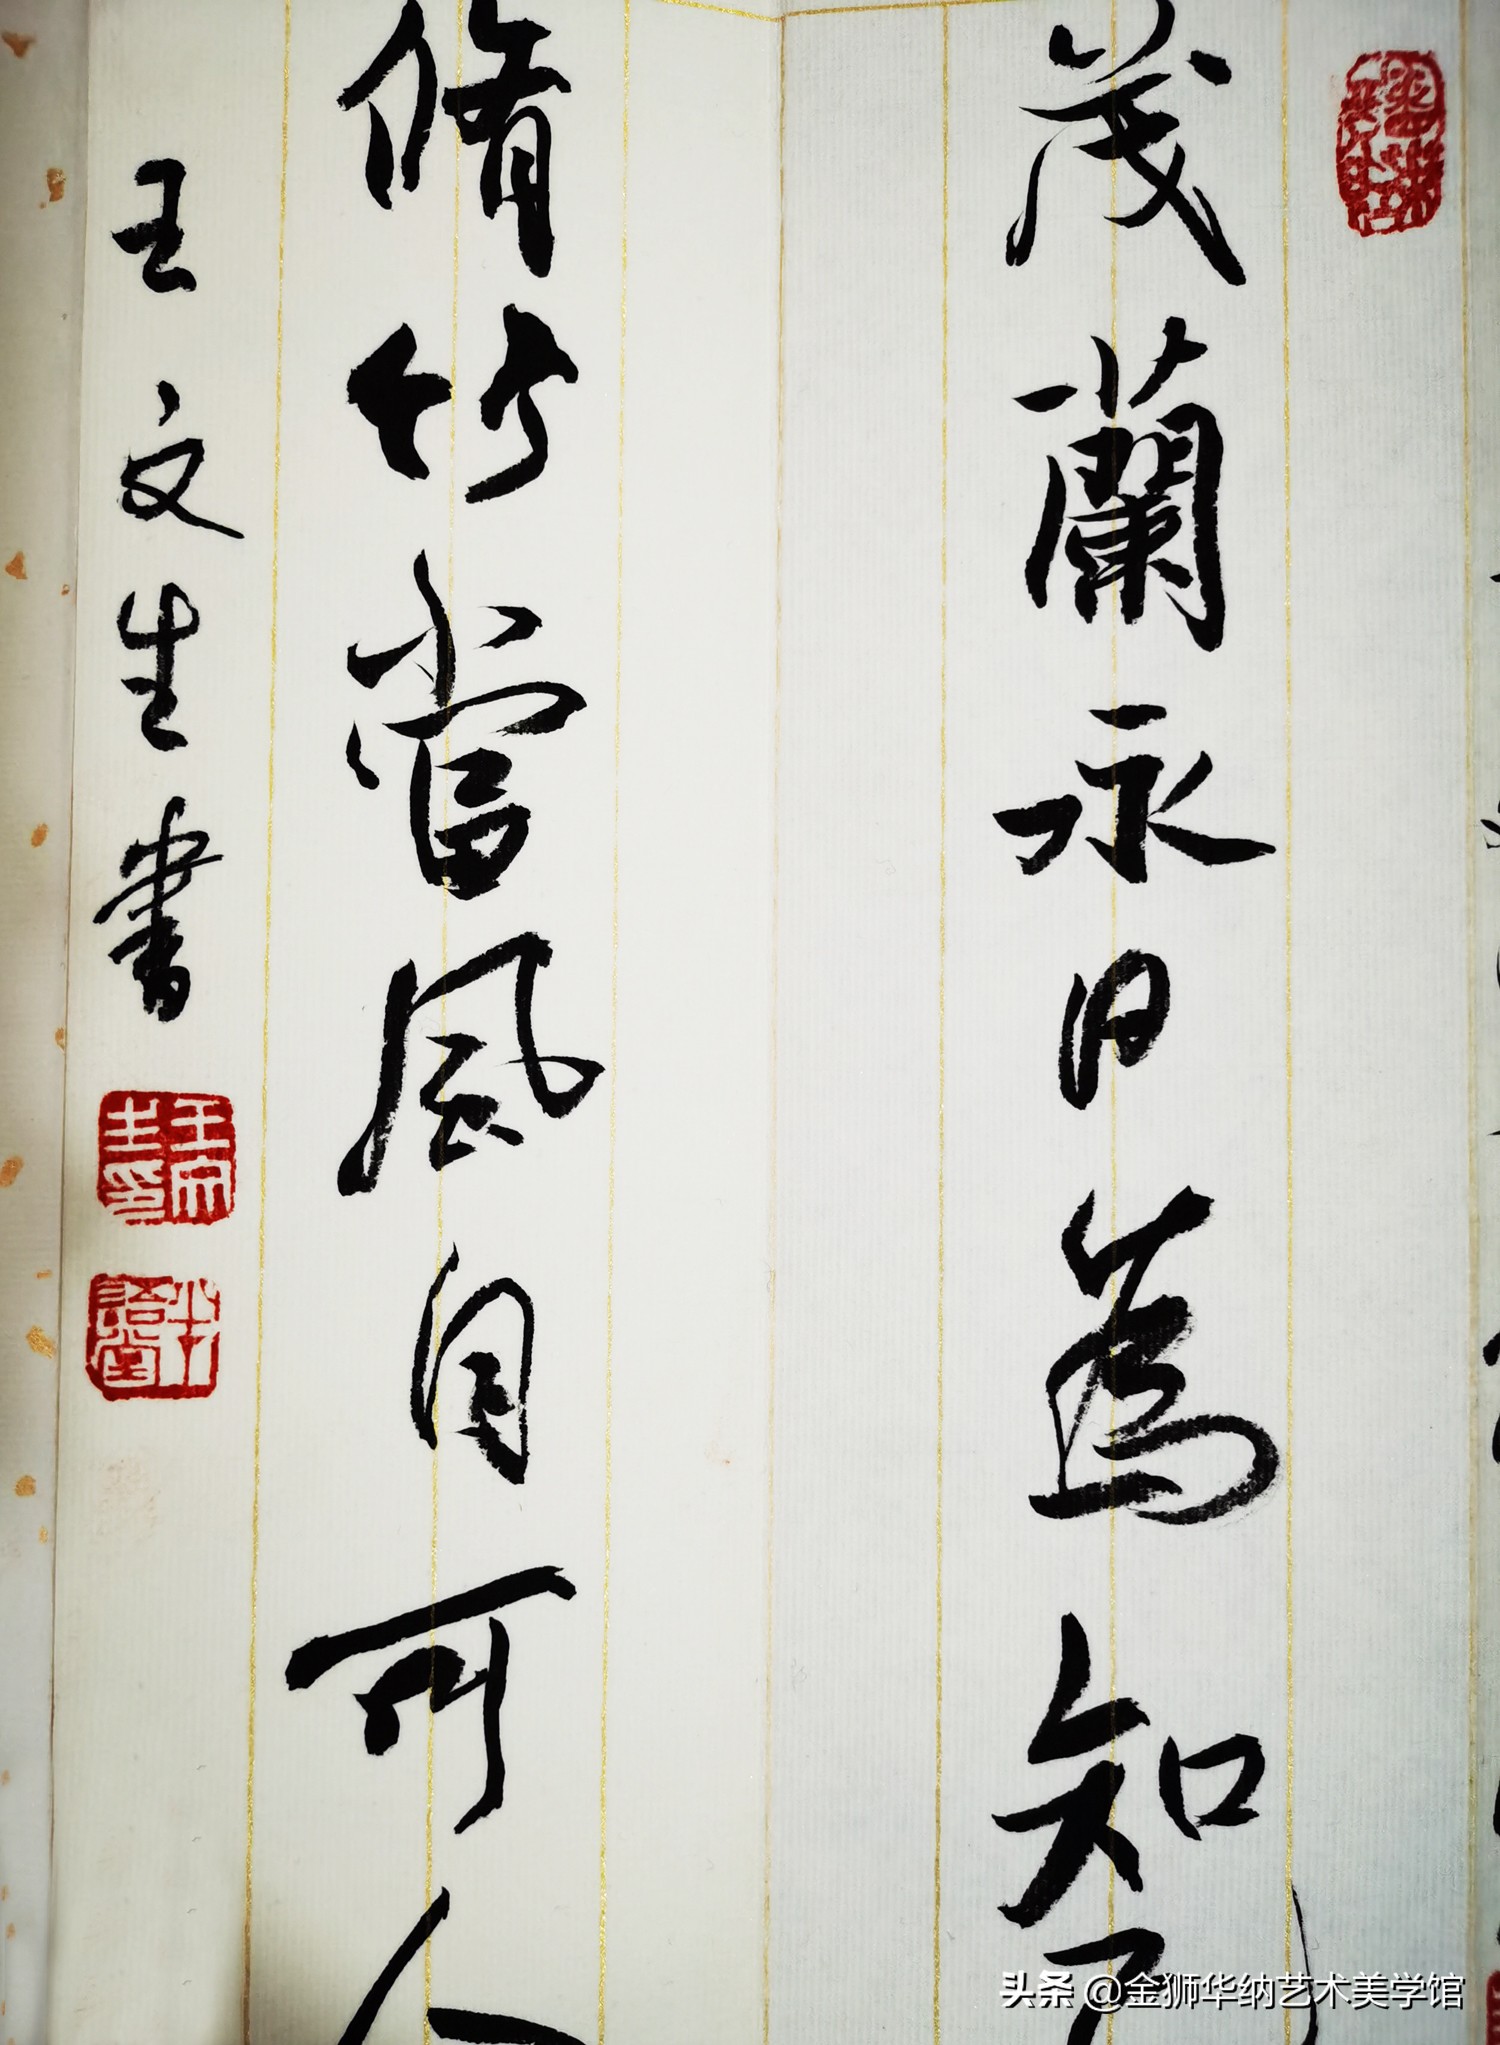 茂蘭永日為知
脩竹當風自可人
王文生書
王文生印
头条 @金狮华纳艺术美学馆